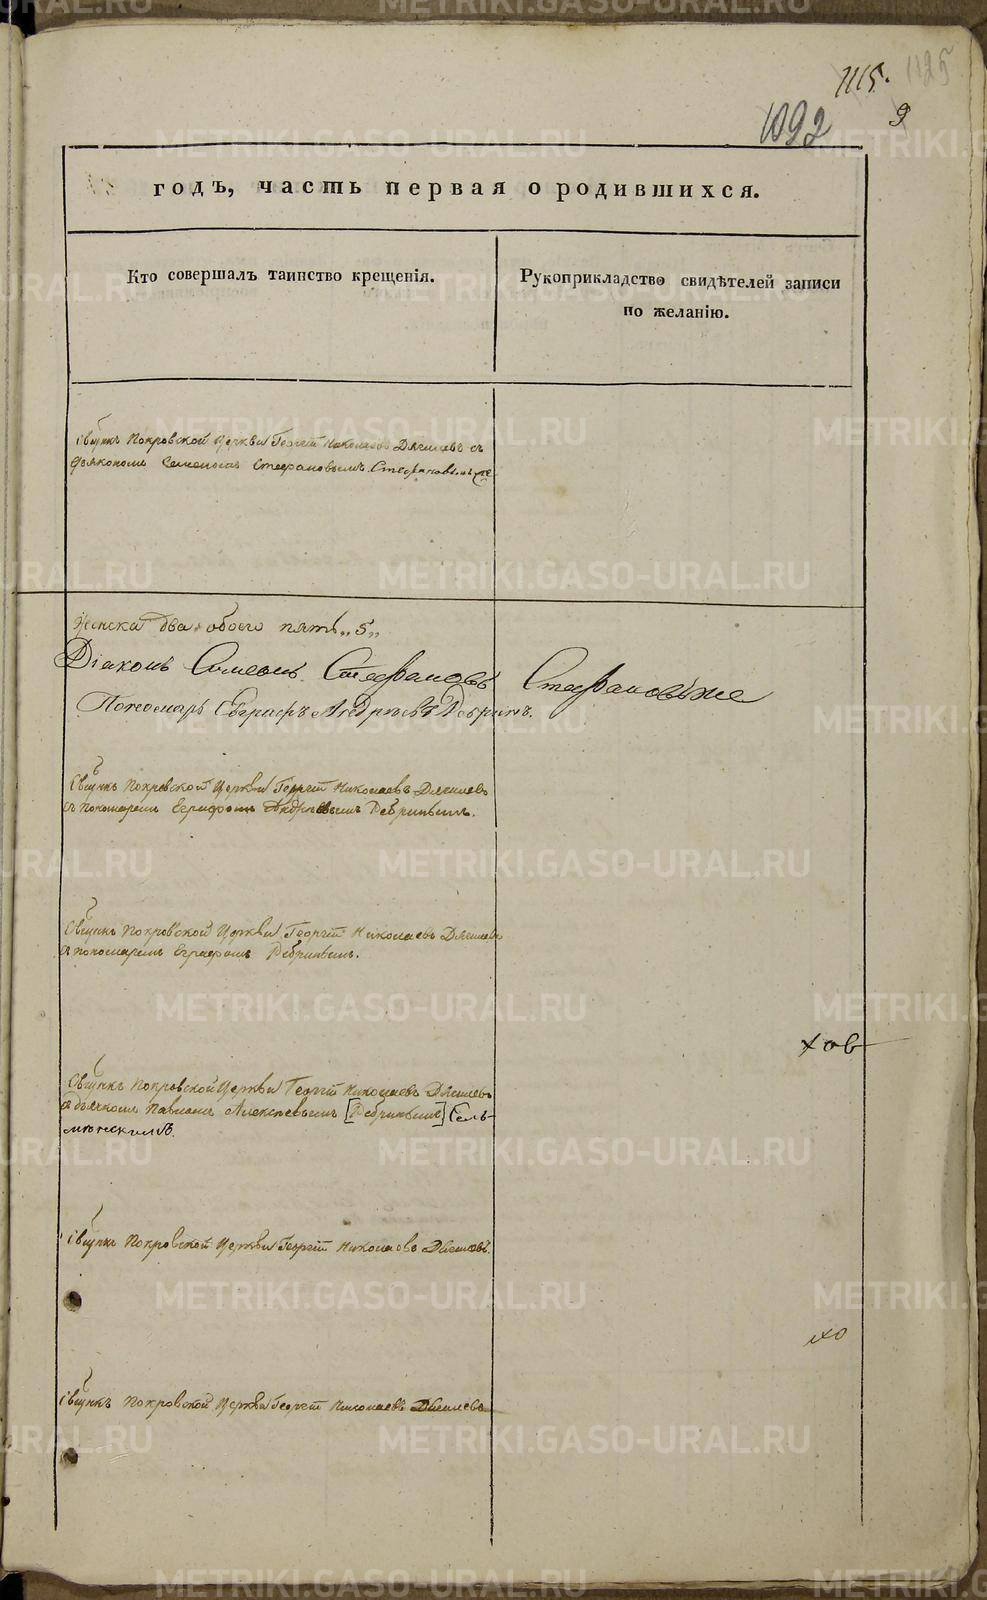 1115. 1125
1092 9
годъ, часть первая о родившихся.
Кто совершалъ таинство крещенія.
Рукоприкладство свидѣтелей записи
по желанію.
Свщнкъ Покровской Церкви Георгій Николаевъ съ
дьякономъ Семеномъ Стефановымъ. Стефановымъ же
Женска два обоего пять „5„
Діаконъ Симеонъ Стефановъ Стефановъ же
Пономарь Евграфъ Андреевъ Ребринъ.
Свщнкъ Покровской Церкви Георгій Николаевъ
съ пономаремъ Еграфомъ Андреевымъ Ребринымъ.
Свщнкъ Покровской Церкви Георгій Николаевъ
съ пономаремъ Еграфомъ Ребринымъ.
хов
Свщнкъ Покровской Церкви Георгій Николаевъ
съ дьячкомъ Павломъ Алексеевымъ [Ребринымъ] Сель-
менскимъ.
Свщнкъ Покровской Церкви Георгій Николаевъ
хо
Свщнкъ Покровской Церкви Георгій Николаевъ
METRIKI.GASO-URAL.RU